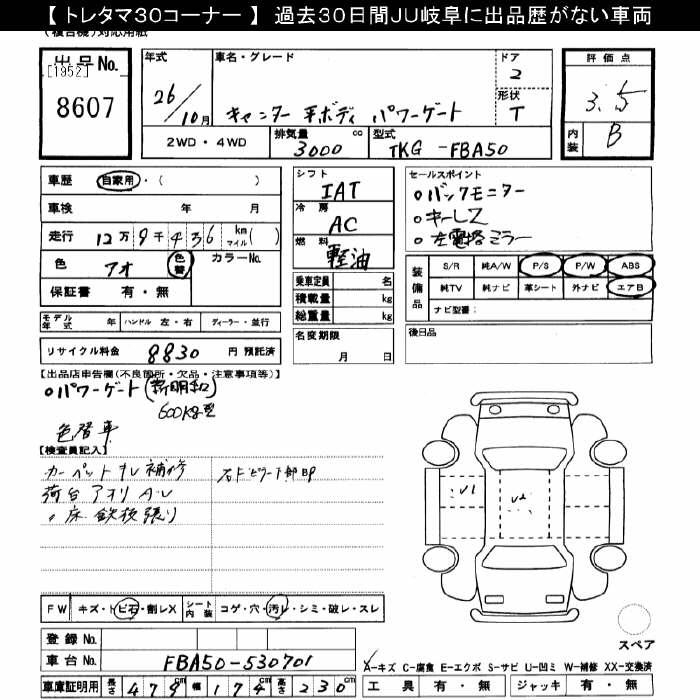 【トレタマ30コーナー】過去30日間JU岐阜に出品歴がない車両
(複合機)対応用紙
出品No.
[1952]
8607
年式
26/10月
車名・グレード
キャンター 平ボディ パワーゲート
ドア
2
形状
T
評価点
3.5
内装
B
2WD・4WD
排気量
3000cc
型式
TKG-FBA50
車歴 自家用・( )
車検 年 月
走行 12万9千436 km マイル( )
色 アオ 色替 カラーNo.
保証書 有・無
シフト
IAT
冷房
AC
燃料
軽油
乗車定員 名
積載量 kg
総重量 kg
名変期限
月 日
セールスポイント
○バックモニター
○キーレス
○左電格ミラー
装備品
S/R 純A/W P/S P/W ABS
純TV 純ナビ 革シート 外ナビ エアB
ナビ型番:
後日品
モデル年式 年 ハンドル 左・右 ディーラー・並行
リサイクル料金 8830 円 預託済
【出品店申告欄(不良箇所・欠品・注意事項等)】
○パワーゲート(新明和)
600kg型
色替車
【検査員記入】
カーペットキレ補修
荷台アオリA・U
〃床鉄板張り
V1
V2
FW キズ・トビ石・割レX
シート内装 コゲ・穴・汚レ・シミ・破レ・スレ
登録No.
車台No. FBA50-530701
車庫証明用 長さ 479cm 幅 174cm 高さ 230cm
スペア
A-キズ C-腐食 E-エクボ S-サビ U-凹ミ W-補修 XX-交換済
工具 有・無 ジャッキ 有・無